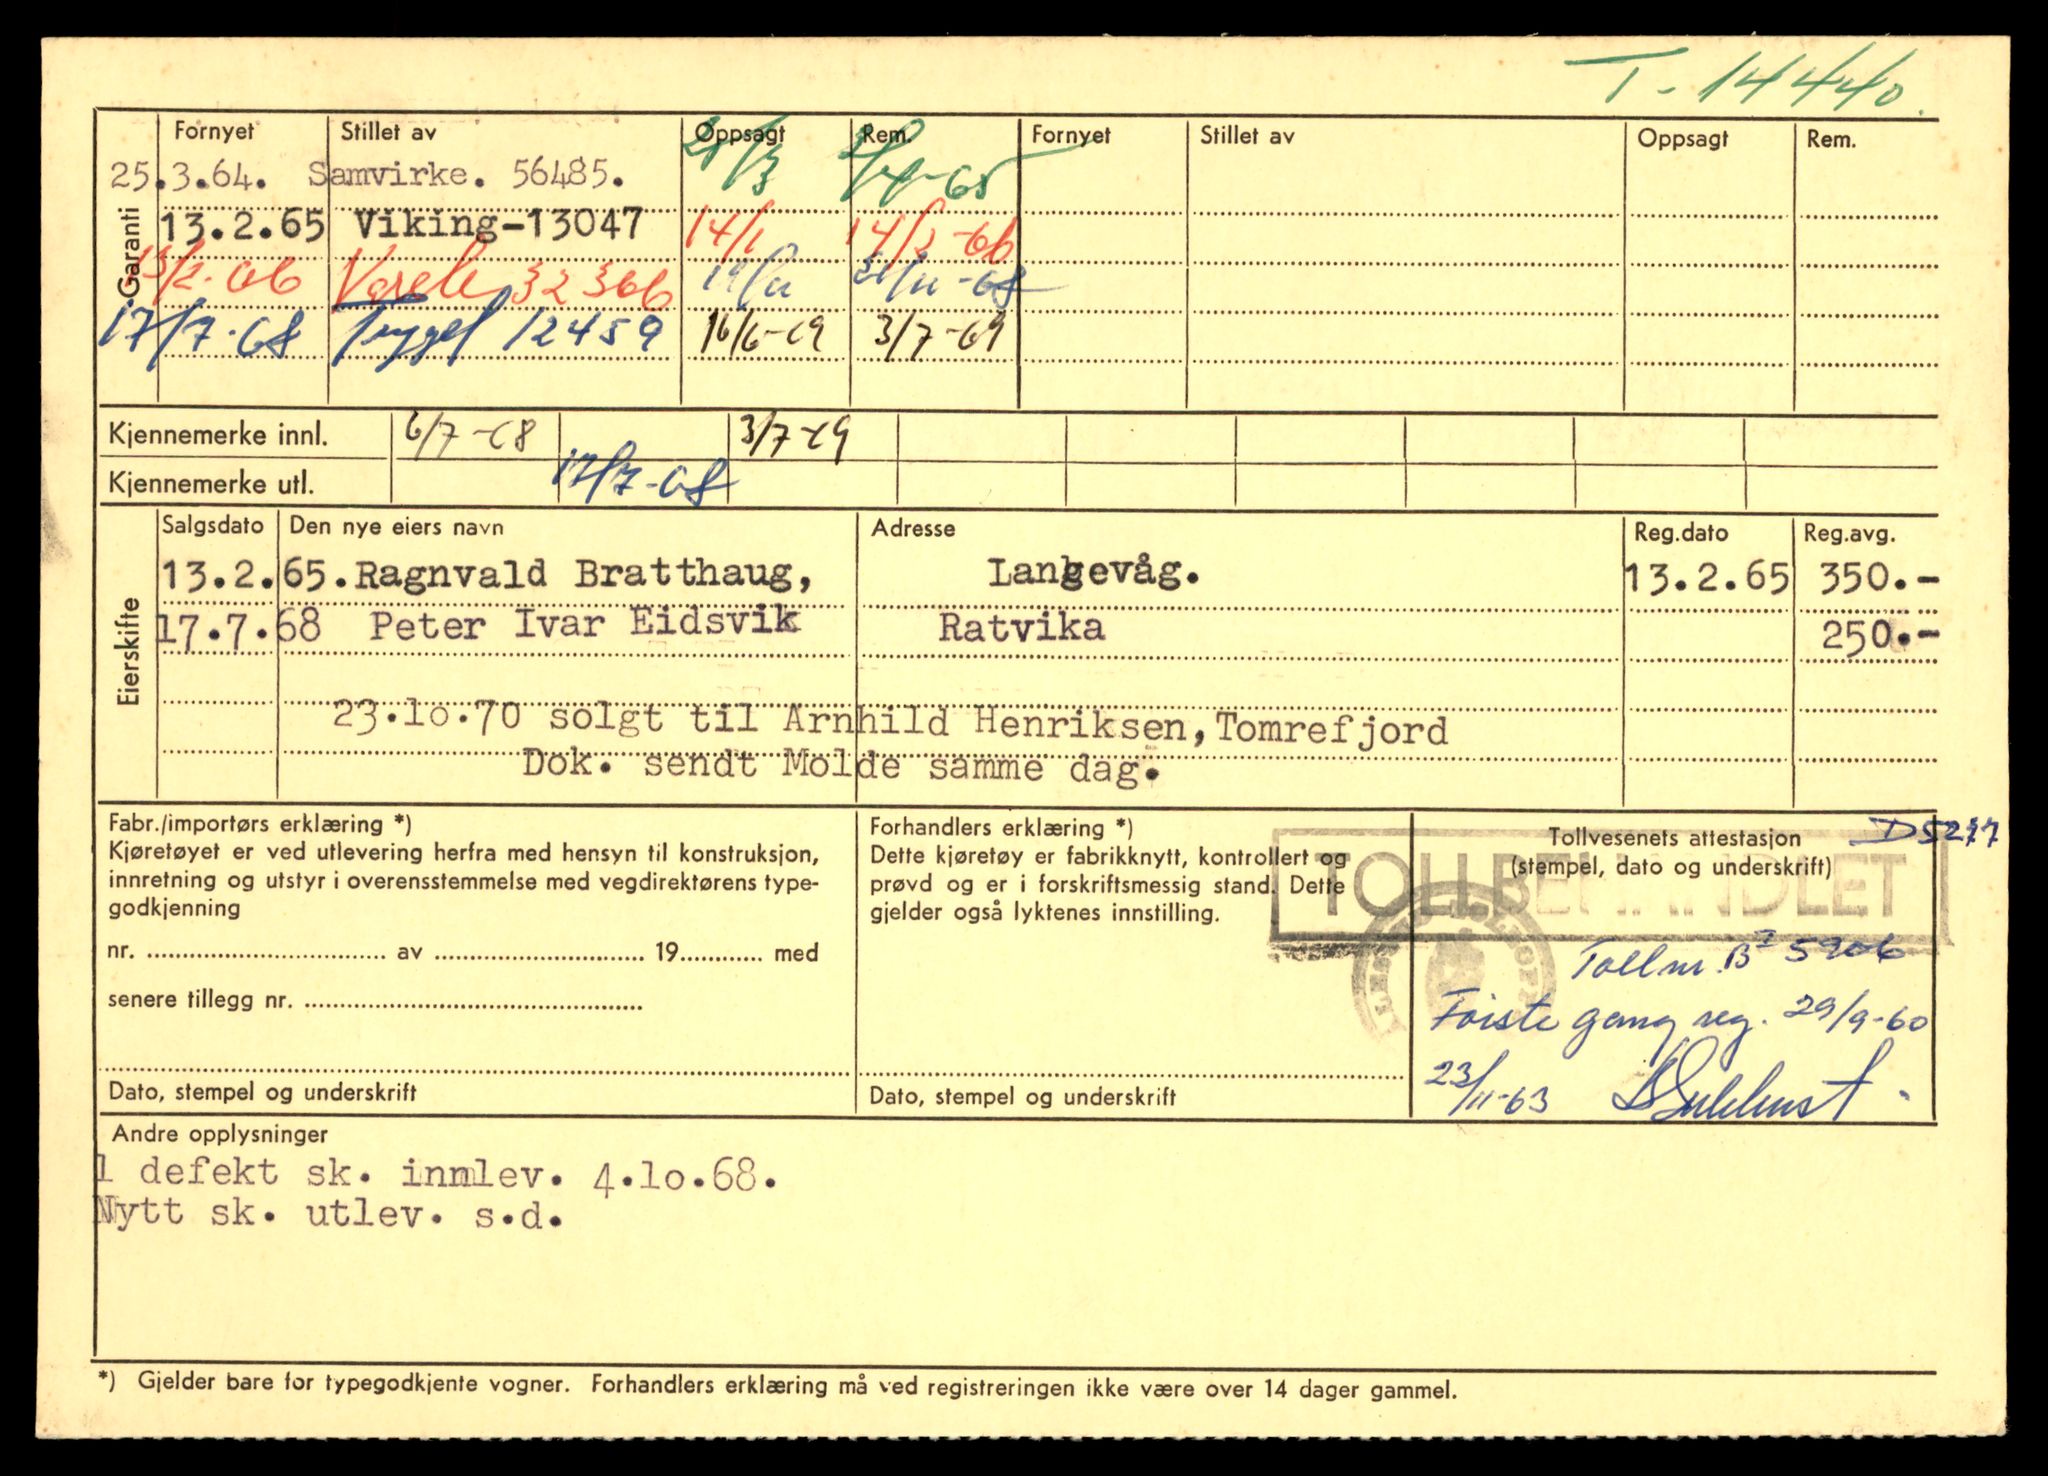 T-14440.
Fornyet Stillet av Oppsagt Rem. Fornyet Stillet av Oppsagt Rem.
Garanti
25.3.64. Samvirke. 56485. 21/3 -65
13.2.65 Viking-13047 14/1 14/2-66
/2-66 32366 19/11 -68
17/7-68 Trygg 12459 16/6-69 3/7-69
Kjennemerke innl. 6/7-68 3/7-69
Kjennemerke utl. 17/7-68
Eierskifte
Salgsdato Den nye eiers navn Adresse Reg.dato Reg.avg.
13.2.65. Ragnvald Bratthaug, Langevåg. 13.2.65 350.-
17.7.68 Peter Ivar Eidsvik Ratvika 250.-
23.lo.70 solgt til Arnhild Henriksen, Tomrefjord
Dok. sendt Molde samme dag.
Fabr./importørs erklæring *)
Kjøretøyet er ved utlevering herfra med hensyn til konstruksjon,
innretning og utstyr i overensstemmelse med vegdirektørens type-
godkjenning
nr. .................... av .................... 19............ med
senere tillegg nr. ....................
Dato, stempel og underskrift
Forhandlers erklæring *)
Dette kjøretøy er fabrikknytt, kontrollert og
prøvd og er i forskriftsmessig stand. Dette
gjelder også lyktenes innstilling.
Dato, stempel og underskrift
Tollvesenets attestasjon D5277
(stempel, dato og underskrift)
TOLLBEHANDLET
Tollnr. B 5906
Første gang reg. 29/9-60
23/11-63
Andre opplysninger
1 defekt sk. innlev. 4.lo.68.
Nytt sk. utlev. s.d.
*) Gjelder bare for typegodkjente vogner. Forhandlers erklæring må ved registreringen ikke være over 14 dager gammel.